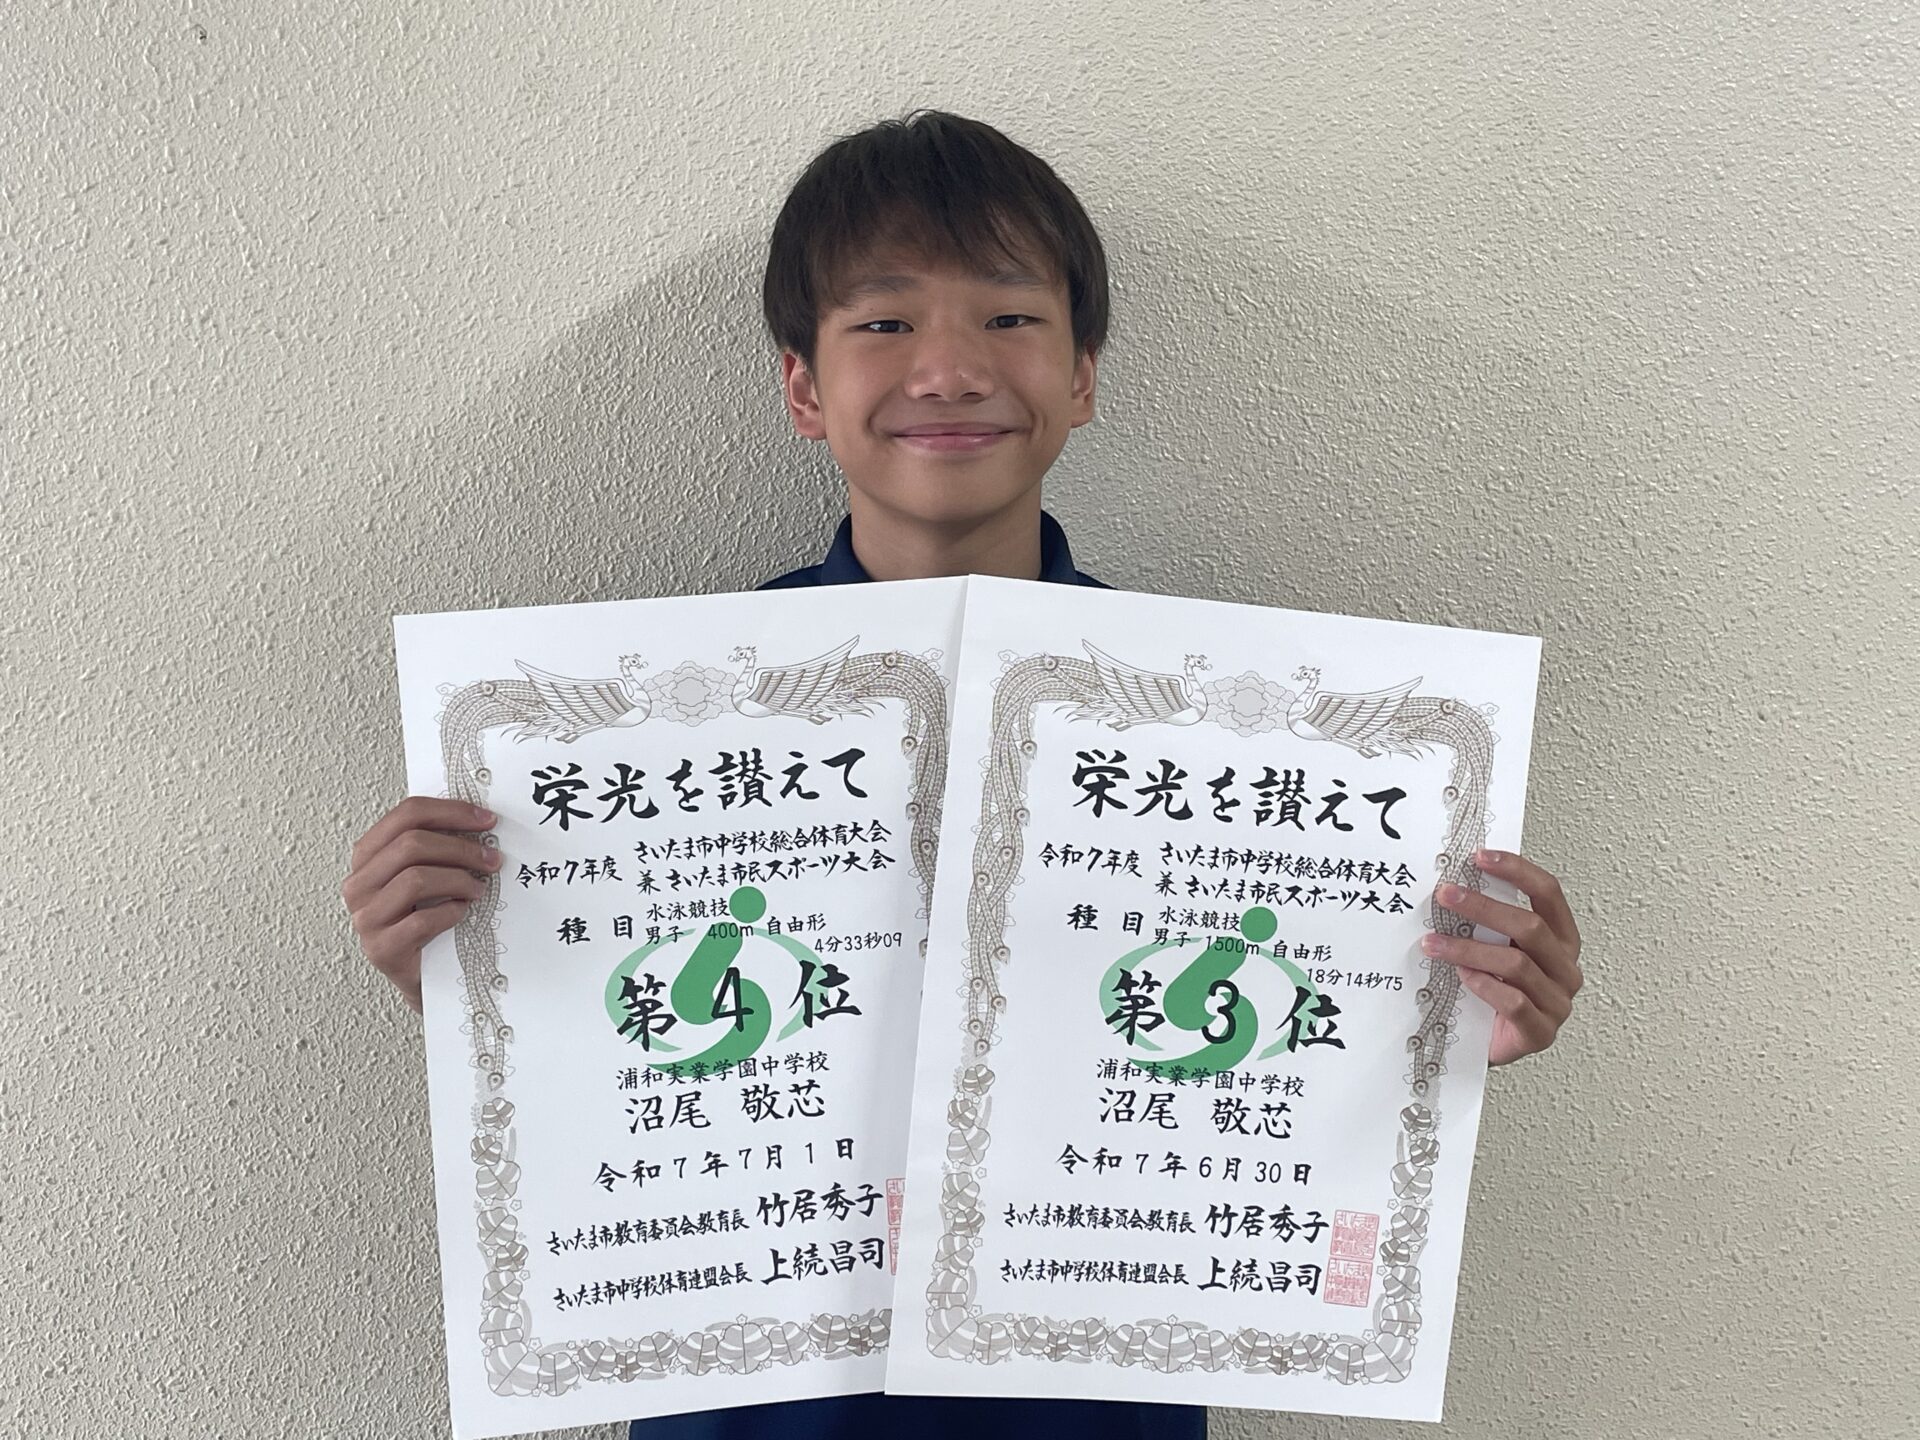 栄光を讃えて
令和7年度 さいたま市中学校総合体育大会
兼 さいたま市民スポーツ大会
種目 水泳競技
男子 400m 自由形
4分33秒09
第 4 位
浦和実業学園中学校
沼尾 敬芯
令和7年7月1日
さいたま市教育委員会教育長 竹居秀子
さいたま市中学校体育連盟会長 上続昌司
栄光を讃えて
令和7年度 さいたま市中学校総合体育大会
兼 さいたま市民スポーツ大会
種目 水泳競技
男子 1500m 自由形
18分14秒75
第 3 位
浦和実業学園中学校
沼尾 敬芯
令和7年6月30日
さいたま市教育委員会教育長 竹居秀子
さいたま市中学校体育連盟会長 上続昌司